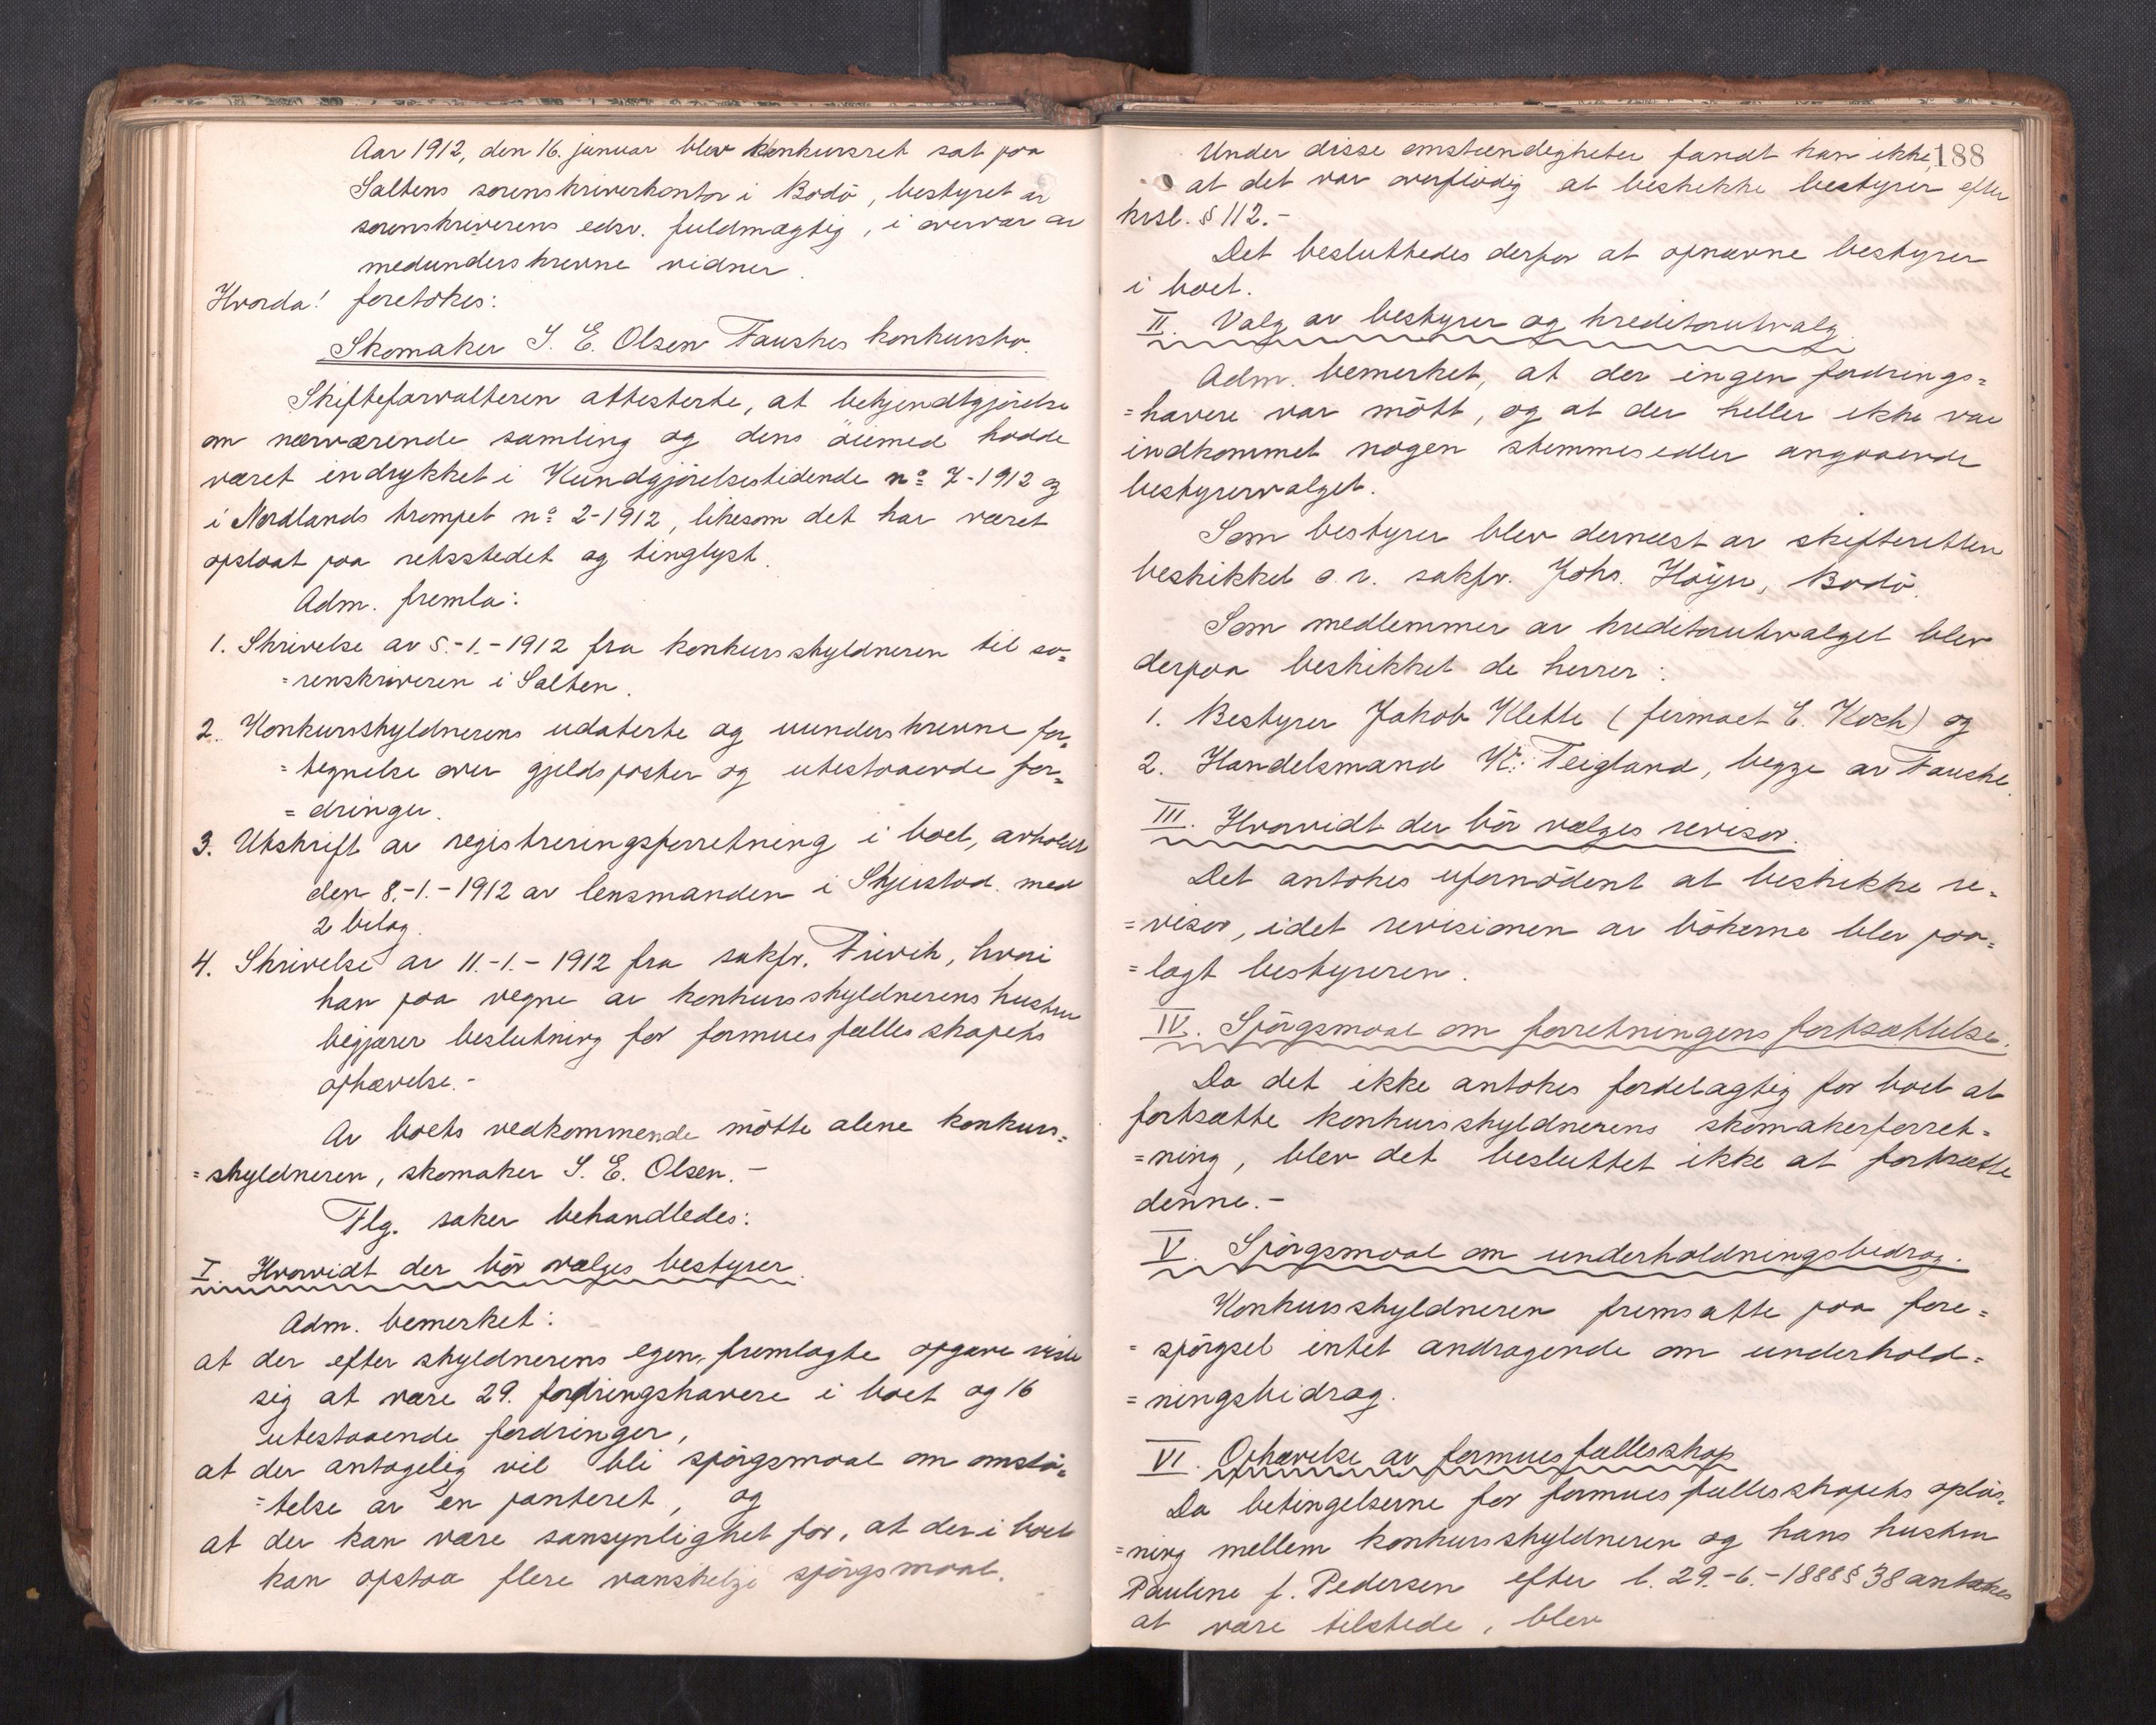 Aar 1912, den 16. januar blev konkursret sat paa
Saltens sorenskriverkontor i Bodö, bestyret av
sorenskriverens edsv. fuldmægtig, i overvær av
medunderskrevne vidner.
Hvorda! foretokes:
Skomaker S. E. Olsen Fauskes konkursbo.
Skifteforvalteren attesterte, at bekjendtgjörelse
om nærværende samling og dens öiemed hadde
været indrykket i Kundgjörelsestidende no 7-1912 og
i Nordlands trompet no 2-1912, likesom det har været
opslaat paa retsstedet og tinglyst.
Adm. fremla:
1. Skrivelse av 5.-1.-1912 fra konkursskyldneren til so=
=renskriveren i Salten.
2. Konkursskyldnerens udaterte og uunderskrevne for=
=tegnelse over gjeldsposter og utestaaende for=
=dringer.
3. Utskrift av registreringsforretning i boet, avholdt
den 8.-1.-1912 av lensmanden i Skjerstad med
2 bilag.
4. Skrivelse av 11.-1.-1912 fra sakfr. , hvori
han paa vegne av konkursskyldnerens hustru
begjærer beslutning for formuesfællesskapets
ophævelse.-
Av boets vedkommende mötte alene konkurs=
=skyldneren, skomaker S. E. Olsen.-
Flg. saker behandledes:
I. Hvorvidt der bör vælges bestyrer.
Adm. bemerket:
at der efter skyldnerens egen fremlagte opgave viste
sig at være 29. fordringshavere i boet og 16
utestaaende fordringer,
at der antagelig vil bli spörgsmaal om omstö=
=telse av en panteret, og
at der kan være sansynlighet for, at der i boet
kan opstaa flere vanskelige spörgsmaal.
188
Under disse omstændigheter fandt han ikke,
at det var overflödig at beskikke bestyrer efter
krsl. § 112.-
Det besluttedes derfor at opnævne bestyrer
i boet.
II. Valg av bestyrer og kreditorutvalg.
Adm. bemerket, at der ingen fordrings=
=havere var mött, og at der heller ikke var
indkommet nogen stemmesedler angaaende
bestyrervalget.
Som bestyrer blev dernæst av skifteretten
beskikket o.r. sakfr. Johs. , Bodö.
Som medlemmer av kreditorutvalget blev
derpaa beskikket de herrer:
1. Bestyrer Jakob Klette (firmaet E. Koch) og
2. Handelsmand Teigland, begge av Fauske.
III. Hvorvidt der bör vælges revisor.
Det antokes ufornödent at beskikke re=
=visor, idet revisionen av bökerne blev paa=
=lagt bestyreren.
IV. Spörgsmaal om forretningens fortsættelse.
Da det ikke antokes fordelagtig for boet at
fortsætte konkursskyldnerens skomakerforret=
=ning, blev det besluttet ikke at fortsætte
denne.-
V. Spörgsmaal om underholdningsbidrag.
Konkursskyldneren fremsatte paa fore=
=spörgsel intet andragende om underhold=
=ningsbidrag.
VI. Ophævelse av formuesfællesskap
Da betingelserne for formuesfællesskapets oplös=
=ning mellem konkursskyldneren og hans hustru
Pauline f. Pedersen efter l. 29.-6.-1888 § 38 antokes
at være tilstede, blev